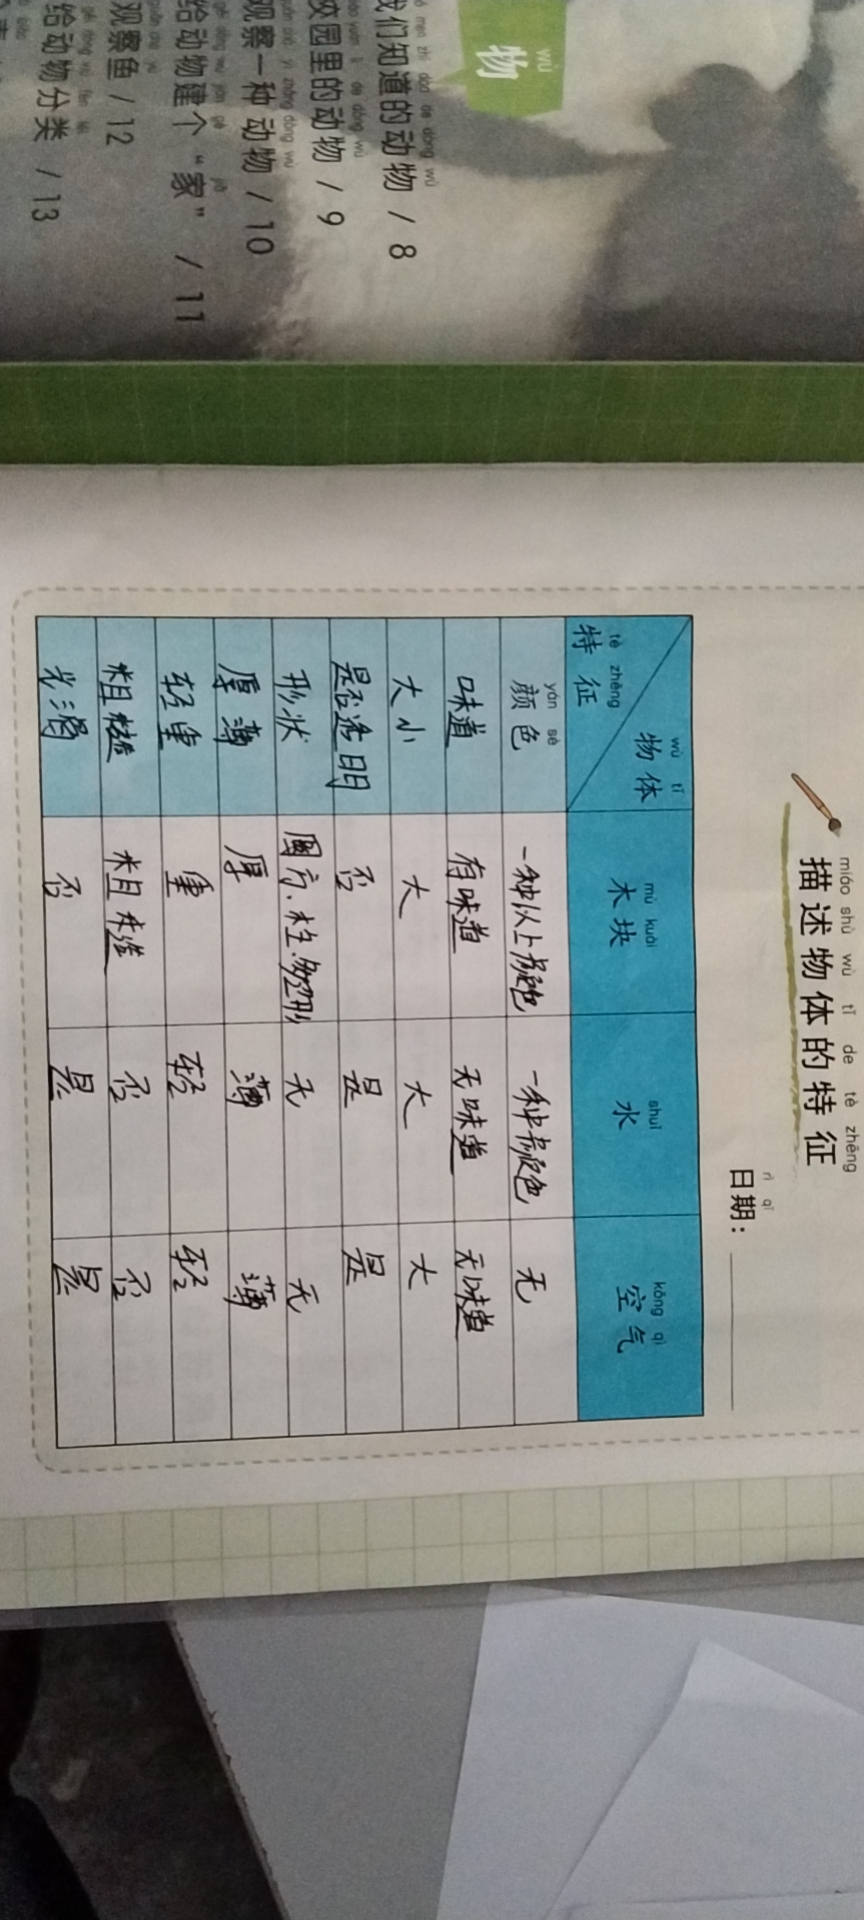 wù
物
我们知道的动物 / 8
校园里的动物 / 9
观察一种动物 / 10
给动物建个“家” / 11
观察鱼 / 12
给动物分类 / 13
miáo shù wù tǐ de tè zhēng
描述物体的特征
rì qī
日期：
wù tǐ
物体
tè zhēng
特征
mù kuài
木块
shuǐ
水
kōng qì
空气
yán sè
颜色 一种以上颜色 一种颜色 无
味道 有味道 无味道 无味道
大小 大 大 大
是否透明 否 是 是
形状 圆、方、柱、多边形 无 无
厚薄 厚 薄 薄
轻重 重 轻 轻
粗糙 粗糙 否 否
光滑 否 是 是